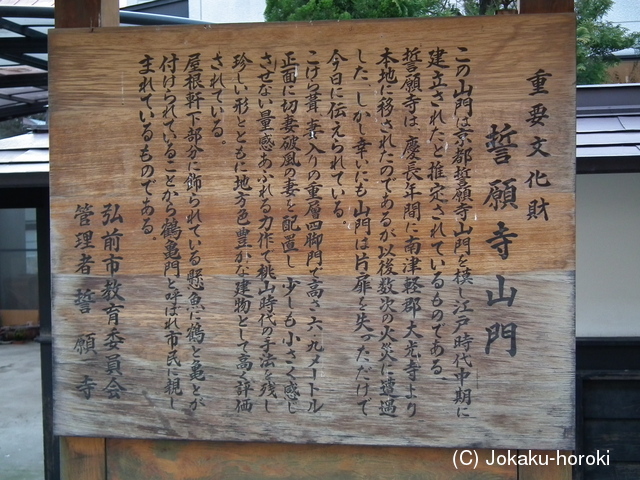 重要文化財
誓願寺山門
この山門は京都誓願寺山門を模し江戸時代中期に
建立されたと推定されているものである。
誓願寺は、慶長年間に南津軽郡大光寺より
本地に移されたのであるが以後数次の火災に遭遇
した。しかし幸いにも山門は片扉を失っただけで
今日に伝えられている。
こけら葺、妻入りの重層四脚門で高さ六、九メートル
正面に切妻破風の妻を配置し、少しも小さく感じ
させない量感あふれる力作で桃山時代の手法を残し
珍しい形とともに地方色豊かな建物として高く評価
されている。
屋根軒下部分に飾られている懸魚に鶴と亀とが
付けられていることから鶴亀門と呼ばれ市民に親し
まれているものである。
弘前市教育委員会
管理者 誓願寺
(C) Jokaku-horoki